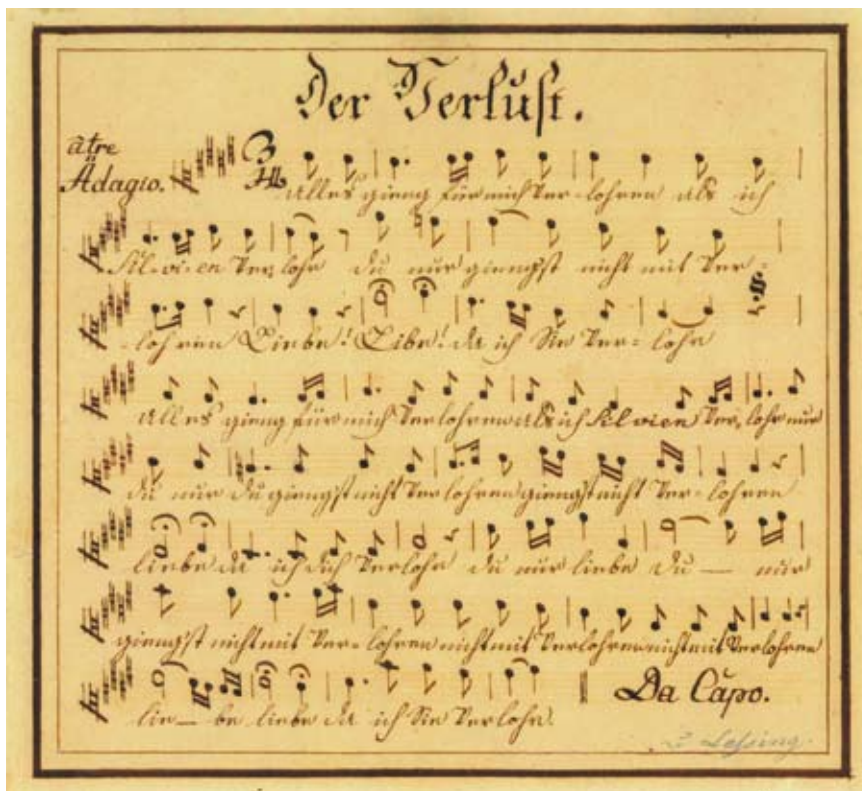 Der Verlust.
àtre
Adagio.
Alles gieng für mich ver-lohren als ich
Sil-vi-en verlohr du nur giengst nicht mit ver-
lohren Liebe! Libe! da ich Sie ver-lohr
Alles gieng für mich verlohren als ich Silvien ver-lohr nur
du nur du giengst nicht verlohren giengst nicht ver-lohren
liebe da ich dich verlohr du nur liebe du — nur
giengst nicht mit ver-lohren nicht mit verlohren nicht mit verlohren
lie— be liebe da ich Sie verlohr.
Da Capo.
Lessing.